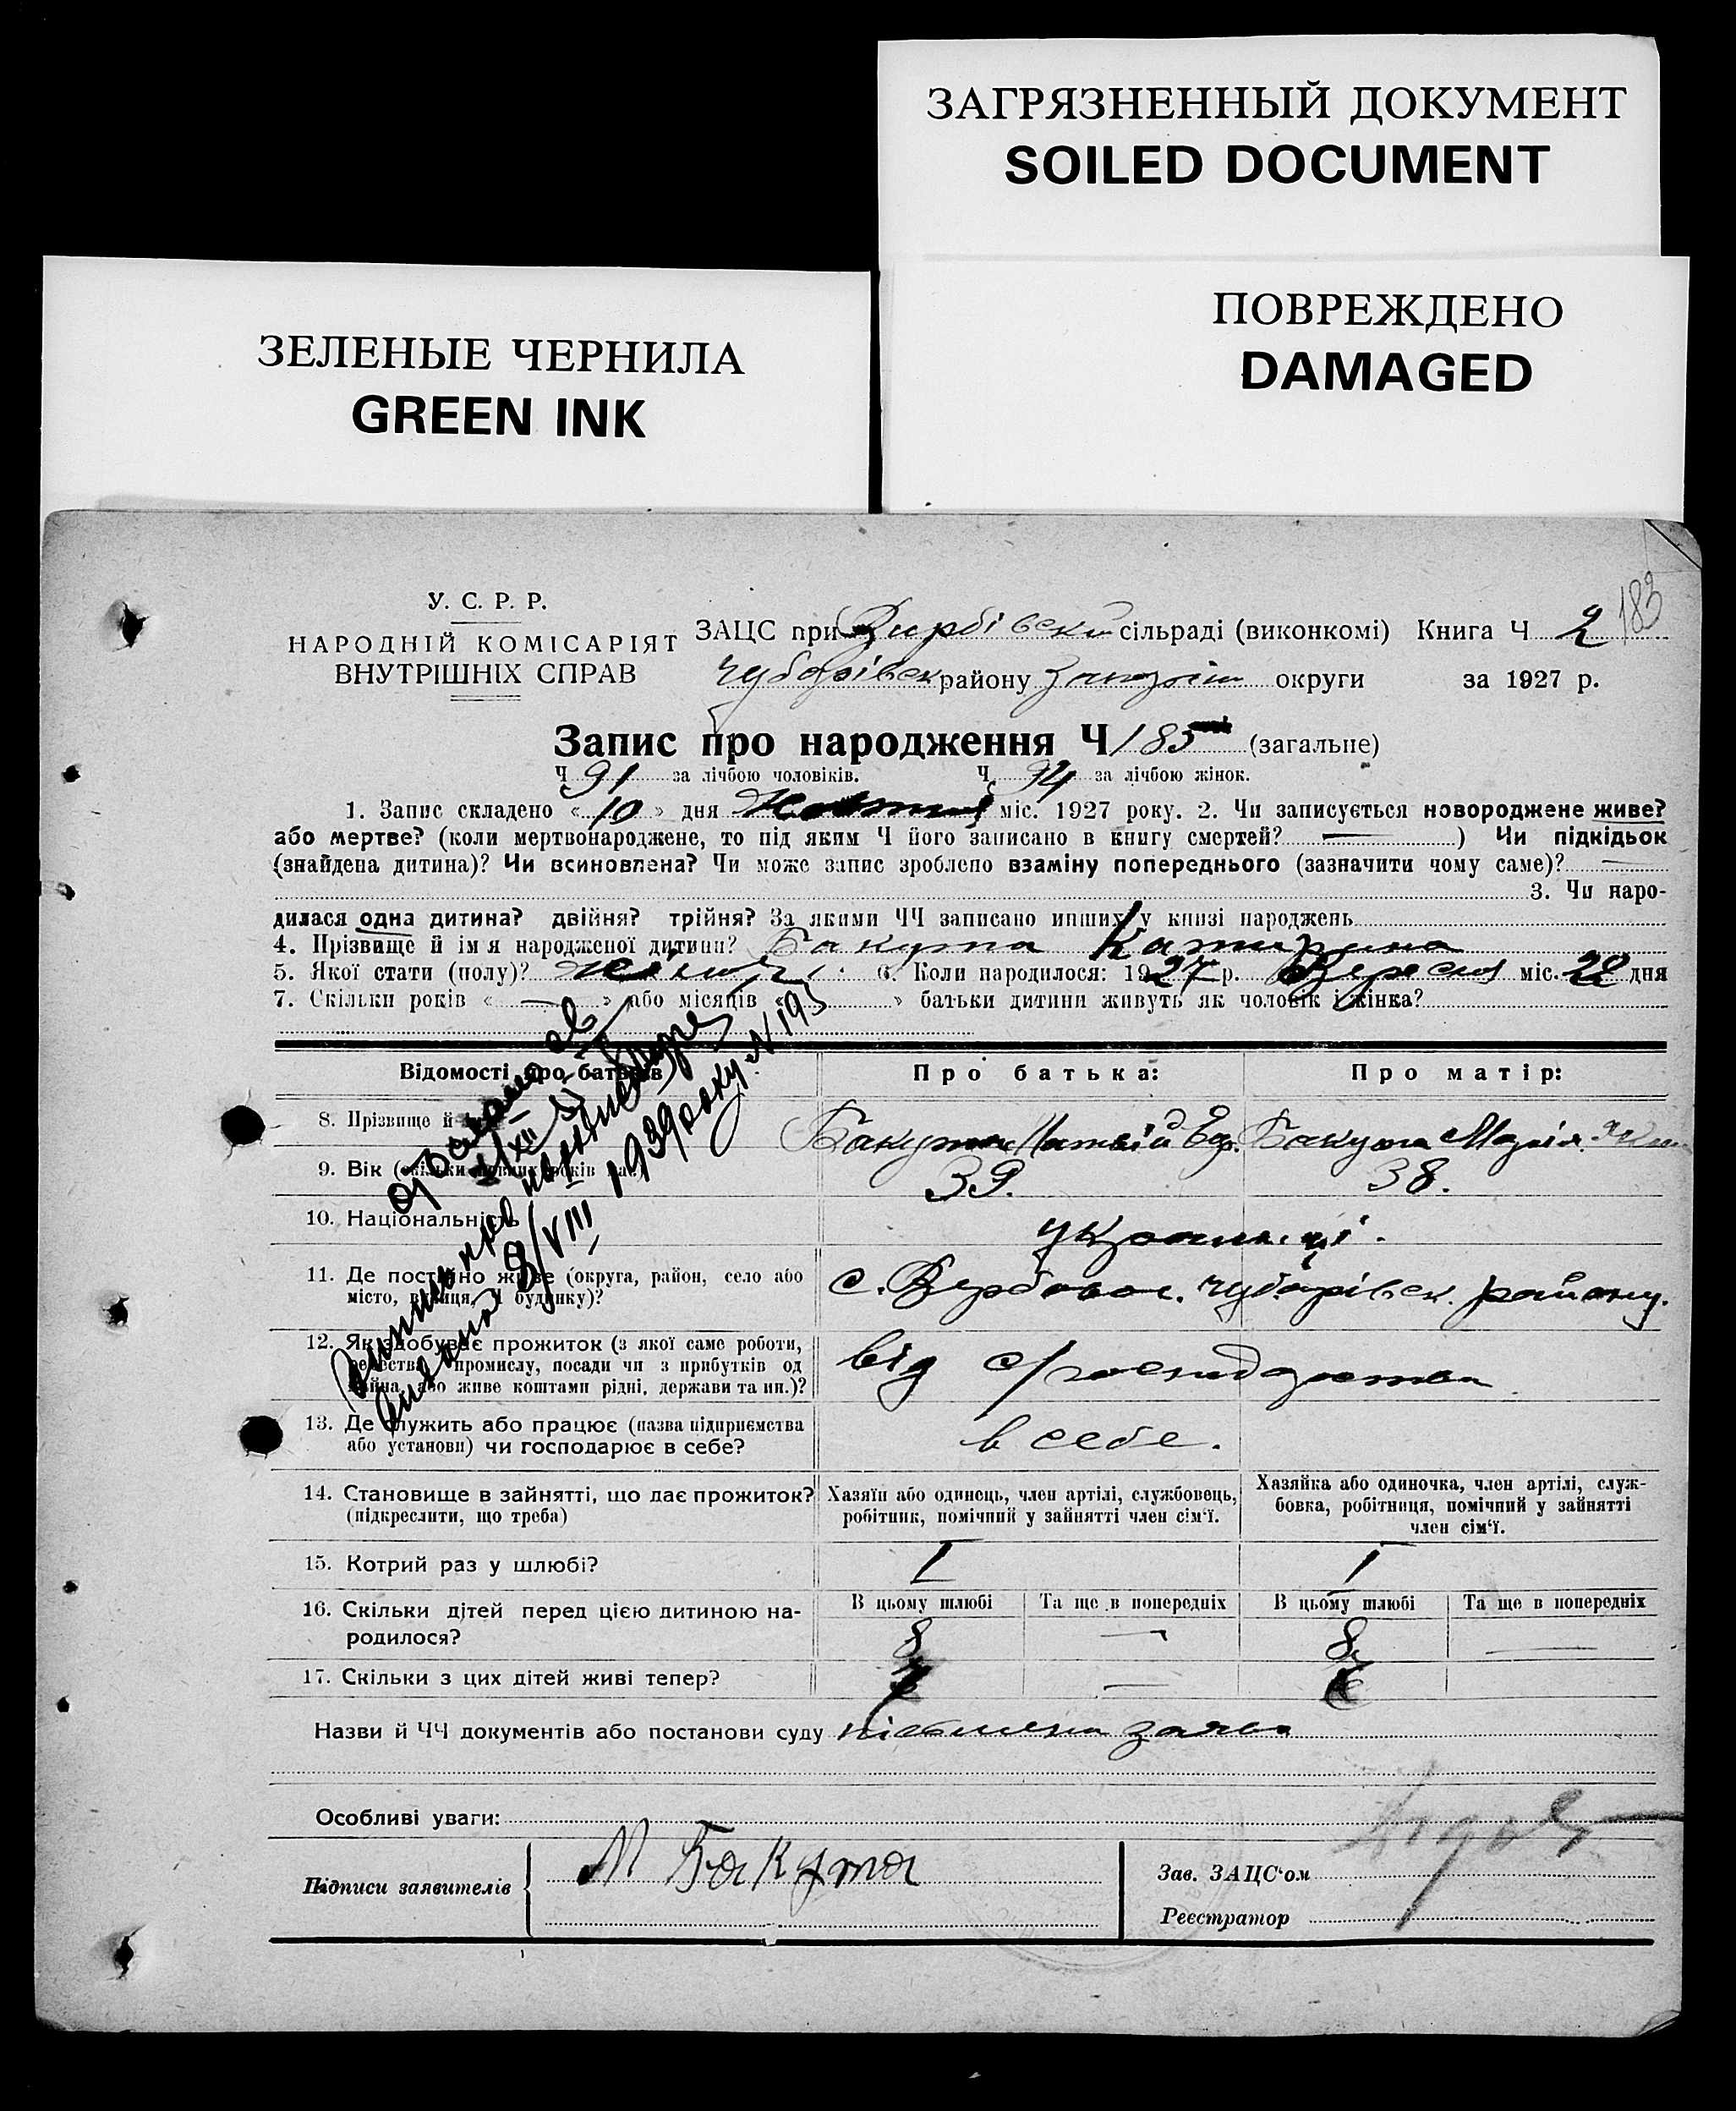 ЗАГРЯЗНЕННЫЙ ДОКУМЕНТ
SOILED DOCUMENT
ПОВРЕЖДЕНО
DAMAGED
ЗЕЛЕНЫЕ ЧЕРНИЛА
GREEN INK
183
У. С. Р. Р.
НАРОДНІЙ КОМІСАРІЯТ
ВНУТРІШНІХ СПРАВ
ЗАЦС при Вирбівській сільраді (виконкомі) Книга Ч 2
Чубарівськ району округи за 1927 р.
Запис про народження Ч 185 (загальне)
Ч 91 за лічбою чоловіків. Ч 94 за лічбою жінок.
1. Запис складено « 10 » дня Жовтня міс. 1927 року. 2. Чи записується новороджене живе?
або мертве? (коли мертвонароджене, то під яким Ч його записано в книгу смертей? ) Чи підкідьок
(знайдена дитина)? Чи всиновлена? Чи може запис зроблено взаміну попереднього (зазначити чому саме)?
3. Чи наро-
дилася одна дитина? двійня? трійня? За якими ЧЧ записано инших у книзі народжень
4. Прізвище й ім'я народженої дитини? Бакута Катирина
5. Якої стати (полу)? 6. Коли народилося: 1927 р. Вересня міс. 28 дня
7. Скільки років « — » або місяців « » батьки дитини живуть як чоловік і жінка?
Відомості про батьків
Про батька:
Про матір:
8. Прізвище й
Бакута Матвій Бакута Марія
9. Вік
39. 38.
10. Національність
українці.
11. Де постійно живе (округа, район, село або
місто, вулиця, Ч будинку)?
с. Вербове. Чубарівськ. району.
12. Як здобуває прожиток (з якої саме роботи,
ремества, промислу, посади чи з прибутків од
майна, або живе коштами рідні, держави та ин.)?
від с/господарства
13. Де служить або працює (назва підприємства
або установи) чи господарює в себе?
в себе.
14. Становище в зайнятті, що дає прожиток?
(підкреслити, що треба)
Хазяїн або одинець, член артілі, службовець,
робітник, помічний у зайнятті член сім'ї.
Хазяйка або одиночка, член артілі, служ-
бовка, робітниця, помічний у зайнятті
член сім'ї.
15. Котрий раз у шлюбі?
I I
В цьому шлюбі Та ще в попередніх В цьому шлюбі Та ще в попередніх
16. Скільки дітей перед цією дитиною на-
родилося?
8 — 8 —
17. Скільки з цих дітей живі тепер?
Назви й ЧЧ документів або постанови суду заява
Особливі уваги:
Підписи заявителів
М Бакута
Зав. ЗАЦС'ом
Реєстратор
9/VIII 1939 року N 195